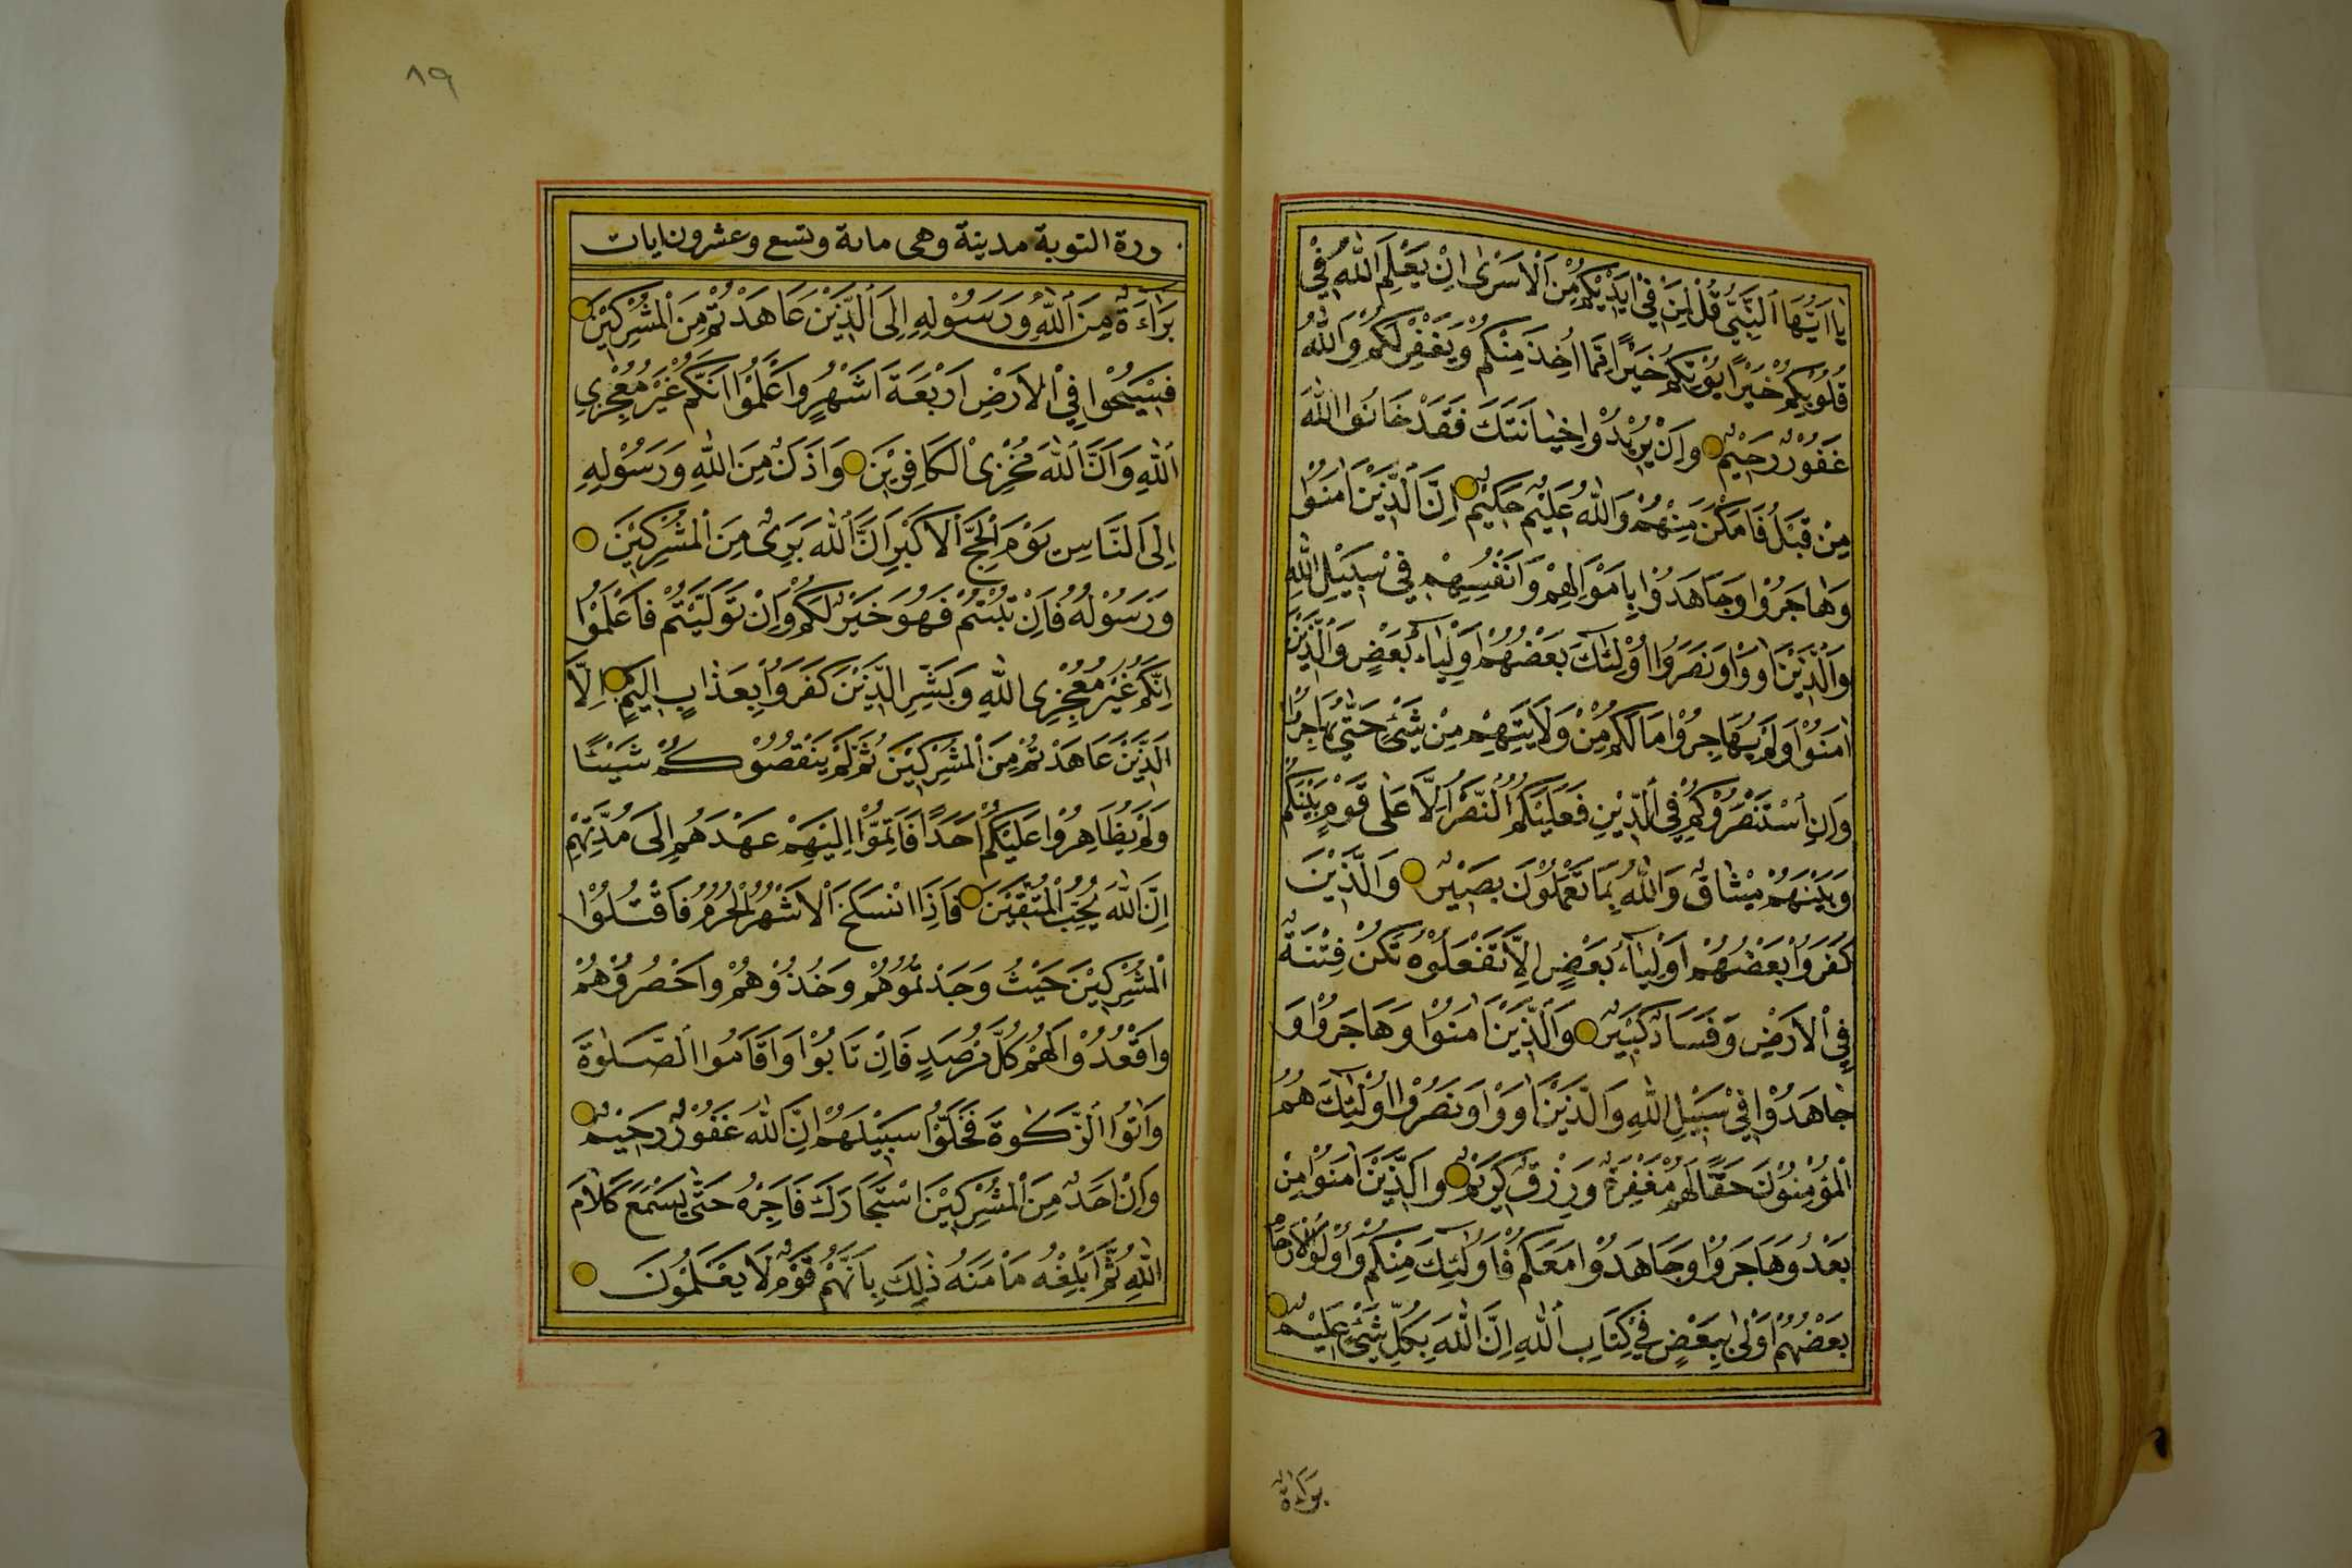 يَا اَيُّهَا النَّبِيُّ قُلْ لِمَنْ فِيْ اَيْدِيْكُمْ مِنَ الْاَسْرٰى اِنْ يَعْلَمِ اللّٰهُ فِيْ
قُلُوْبِكُمْ خَيْرًا يُؤْتِكُمْ خَيْرًا مِمَّا اُخِذَ مِنْكُمْ وَيَغْفِرْ لَكُمْ وَاللّٰهُ
غَفُوْرٌ رَحِيْمٌ وَاِنْ يُرِيْدُوْا خِيَانَتَكَ فَقَدْ خَانُوا اللّٰهَ
مِنْ قَبْلُ فَاَمْكَنَ مِنْهُمْ وَاللّٰهُ عَلِيْمٌ حَكِيْمٌ اِنَّ الَّذِيْنَ اٰمَنُوْا
وَهَاجَرُوْا وَجَاهَدُوْا بِاَمْوَالِهِمْ وَاَنْفُسِهِمْ فِيْ سَبِيْلِ اللّٰهِ
وَالَّذِيْنَ اٰوَوْا وَنَصَرُوْا اُوْلٰئِكَ بَعْضُهُمْ اَوْلِيَاءُ بَعْضٍ وَالَّذِيْنَ
اٰمَنُوْا وَلَمْ يُهَاجِرُوْا مَا لَكُمْ مِنْ وَلَايَتِهِمْ مِنْ شَيْئٍ حَتّٰى يُهَاجِرُوْا
وَاِنِ اسْتَنْصَرُوْكُمْ فِي الدِّيْنِ فَعَلَيْكُمُ النَّصْرُ اِلَّا عَلٰى قَوْمٍ بَيْنَكُمْ
وَبَيْنَهُمْ مِيْثَاقٌ وَاللّٰهُ بِمَا تَعْمَلُوْنَ بَصِيْرٌ وَالَّذِيْنَ
كَفَرُوْا بَعْضُهُمْ اَوْلِيَاءُ بَعْضٍ اِلَّا تَفْعَلُوْهُ تَكُنْ فِتْنَةٌ
فِي الْاَرْضِ وَفَسَادٌ كَبِيْرٌ وَالَّذِيْنَ اٰمَنُوْا وَهَاجَرُوْا وَ
جَاهَدُوْا فِيْ سَبِيْلِ اللّٰهِ وَالَّذِيْنَ اٰوَوْا وَنَصَرُوْا اُوْلٰئِكَ هُمُ
الْمُؤْمِنُوْنَ حَقًّا لَهُمْ مَغْفِرَةٌ وَرِزْقٌ كَرِيْمٌ وَالَّذِيْنَ اٰمَنُوْا مِنْ
بَعْدُ وَهَاجَرُوْا وَجَاهَدُوْا مَعَكُمْ فَاُولٰئِكَ مِنْكُمْ وَاُوْلُوا الْاَرْحَامِ
بَعْضُهُمْ اَوْلٰى بِبَعْضٍ فِيْ كِتَابِ اللّٰهِ اِنَّ اللّٰهَ بِكُلِّ شَيْئٍ عَلِيْمٌ
بَرَاءَةٌ
٨٩
ورة التوبة مدينة وهى مائة وتسع وعشرون ايات
بَرَاءَةٌ مِنَ اللّٰهِ وَرَسُوْلِهِ اِلَى الَّذِيْنَ عَاهَدْتُمْ مِنَ الْمُشْرِكِيْنَ
فَسِيْحُوْا فِي الْاَرْضِ اَرْبَعَةَ اَشْهُرٍ وَاعْلَمُوْا اَنَّكُمْ غَيْرُ مُعْجِزِي
اللّٰهِ وَاَنَّ اللّٰهَ مُخْزِى الْكَافِرِيْنَ وَاَذَانٌ مِنَ اللّٰهِ وَرَسُوْلِهِ
اِلَى النَّاسِ يَوْمَ الْحَجِّ الْاَكْبَرِ اَنَّ اللّٰهَ بَرِىءٌ مِنَ الْمُشْرِكِيْنَ
وَرَسُوْلُهُ فَاِنْ تُبْتُمْ فَهُوَ خَيْرٌ لَكُمْ وَاِنْ تَوَلَّيْتُمْ فَاعْلَمُوْا
اِنَّكُمْ غَيْرُ مُعْجِزِى اللّٰهِ وَبَشِّرِ الَّذِيْنَ كَفَرُوْا بِعَذَابٍ اَلِيْمٍ اِلَّا
الَّذِيْنَ عَاهَدْتُمْ مِنَ الْمُشْرِكِيْنَ ثُمَّ لَمْ يَنْقُصُوْكُمْ شَيْئًا
وَلَمْ يُظَاهِرُوْا عَلَيْكُمْ اَحَدًا فَاَتِمُّوْا اِلَيْهِمْ عَهْدَهُمْ اِلٰى مُدَّتِهِمْ
اِنَّ اللّٰهَ يُحِبُّ الْمُتَّقِيْنَ فَاِذَا انْسَلَخَ الْاَشْهُرُ الْحُرُمُ فَاقْتُلُوْا
الْمُشْرِكِيْنَ حَيْثُ وَجَدْتُمُوْهُمْ وَخُذُوْهُمْ وَاحْصُرُوْهُمْ
وَاقْعُدُوْا لَهُمْ كُلَّ مَرْصَدٍ فَاِنْ تَابُوْا وَاَقَامُوا الصَّلٰوةَ
وَاٰتَوُا الزَّكٰوةَ فَخَلُّوْا سَبِيْلَهُمْ اِنَّ اللّٰهَ غَفُوْرٌ رَحِيْمٌ
وَاِنْ اَحَدٌ مِنَ الْمُشْرِكِيْنَ اسْتَجَارَكَ فَاَجِرْهُ حَتّٰى يَسْمَعَ كَلَامَ
اللّٰهِ ثُمَّ اَبْلِغْهُ مَاْمَنَهُ ذٰلِكَ بِاَنَّهُمْ قَوْمٌ لَا يَعْلَمُوْنَ